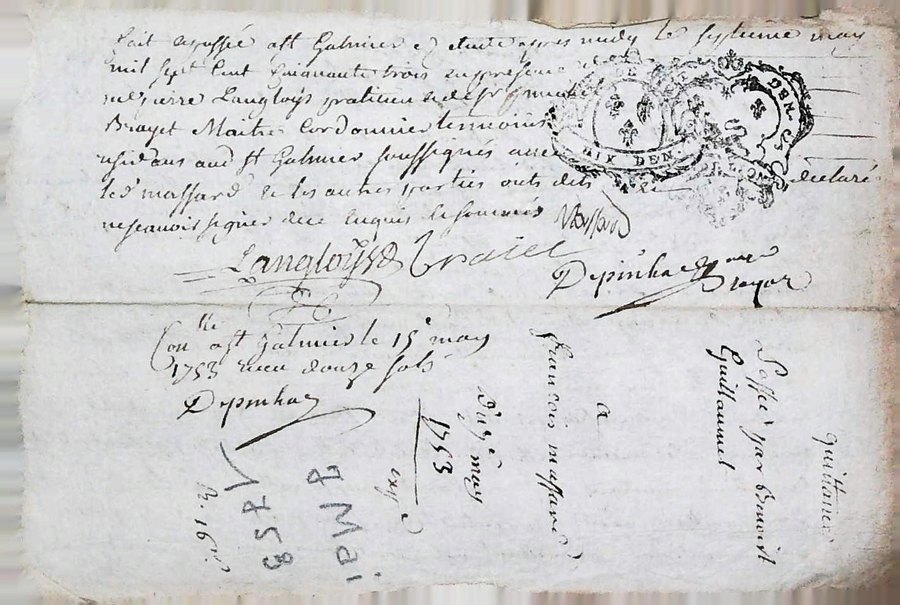 fait et passé a St Galmier en etude apres midy le septieme may
mil sept cent cinquante trois en presence de
me pierre Langloys praticien et de sr
Brayet Maitre Cordonnier temoins
residans aud St Galmier soussignés avec
led massard & les autres parties ont declaré
ne scavoir signer de ce enquis et sommés
Massard
Langloys Braiet
Depinhac
Conlle a St Galmier le 15e may
1753 receu douze sols
Depinhac
quittance
Passée par benoist
Guillaumel
a
francois massard
Du 7e may
1753
exp
R. 16
7 Mai
1753
DIX DEN
DEN
LYON